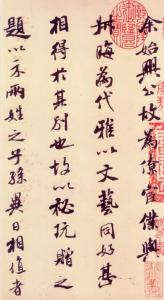 余始興公故為寮宦僕與
叔晦為代雅以文藝同好甚
相得於其別也故以祕玩贈之
題以示兩姓之子孫異日相值者